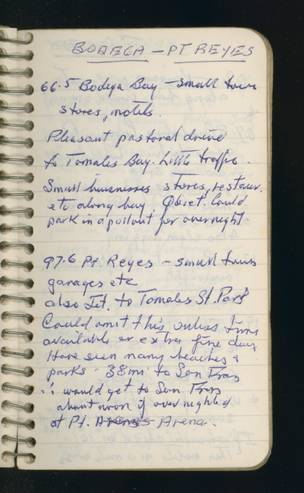 BODEGA - PT REYES
66.5 Bodega Bay - small town
stores, motels.
Pleasant pastoral drive
to Tomales Bay. Little traffic.
Small businesses stores, restaur.
etc along bay Quiet. Could
park in a pollout for overnight
97.6 Pt. Reyes - small town
garages etc
also Jct. to Tomales St. Park
Could omit this unless time
available or extra fine day
Have seen many beaches &
parks - 38 mi to San Fran
∴ would get to San Fran
about noon if overnighted
at Pt. Arena.